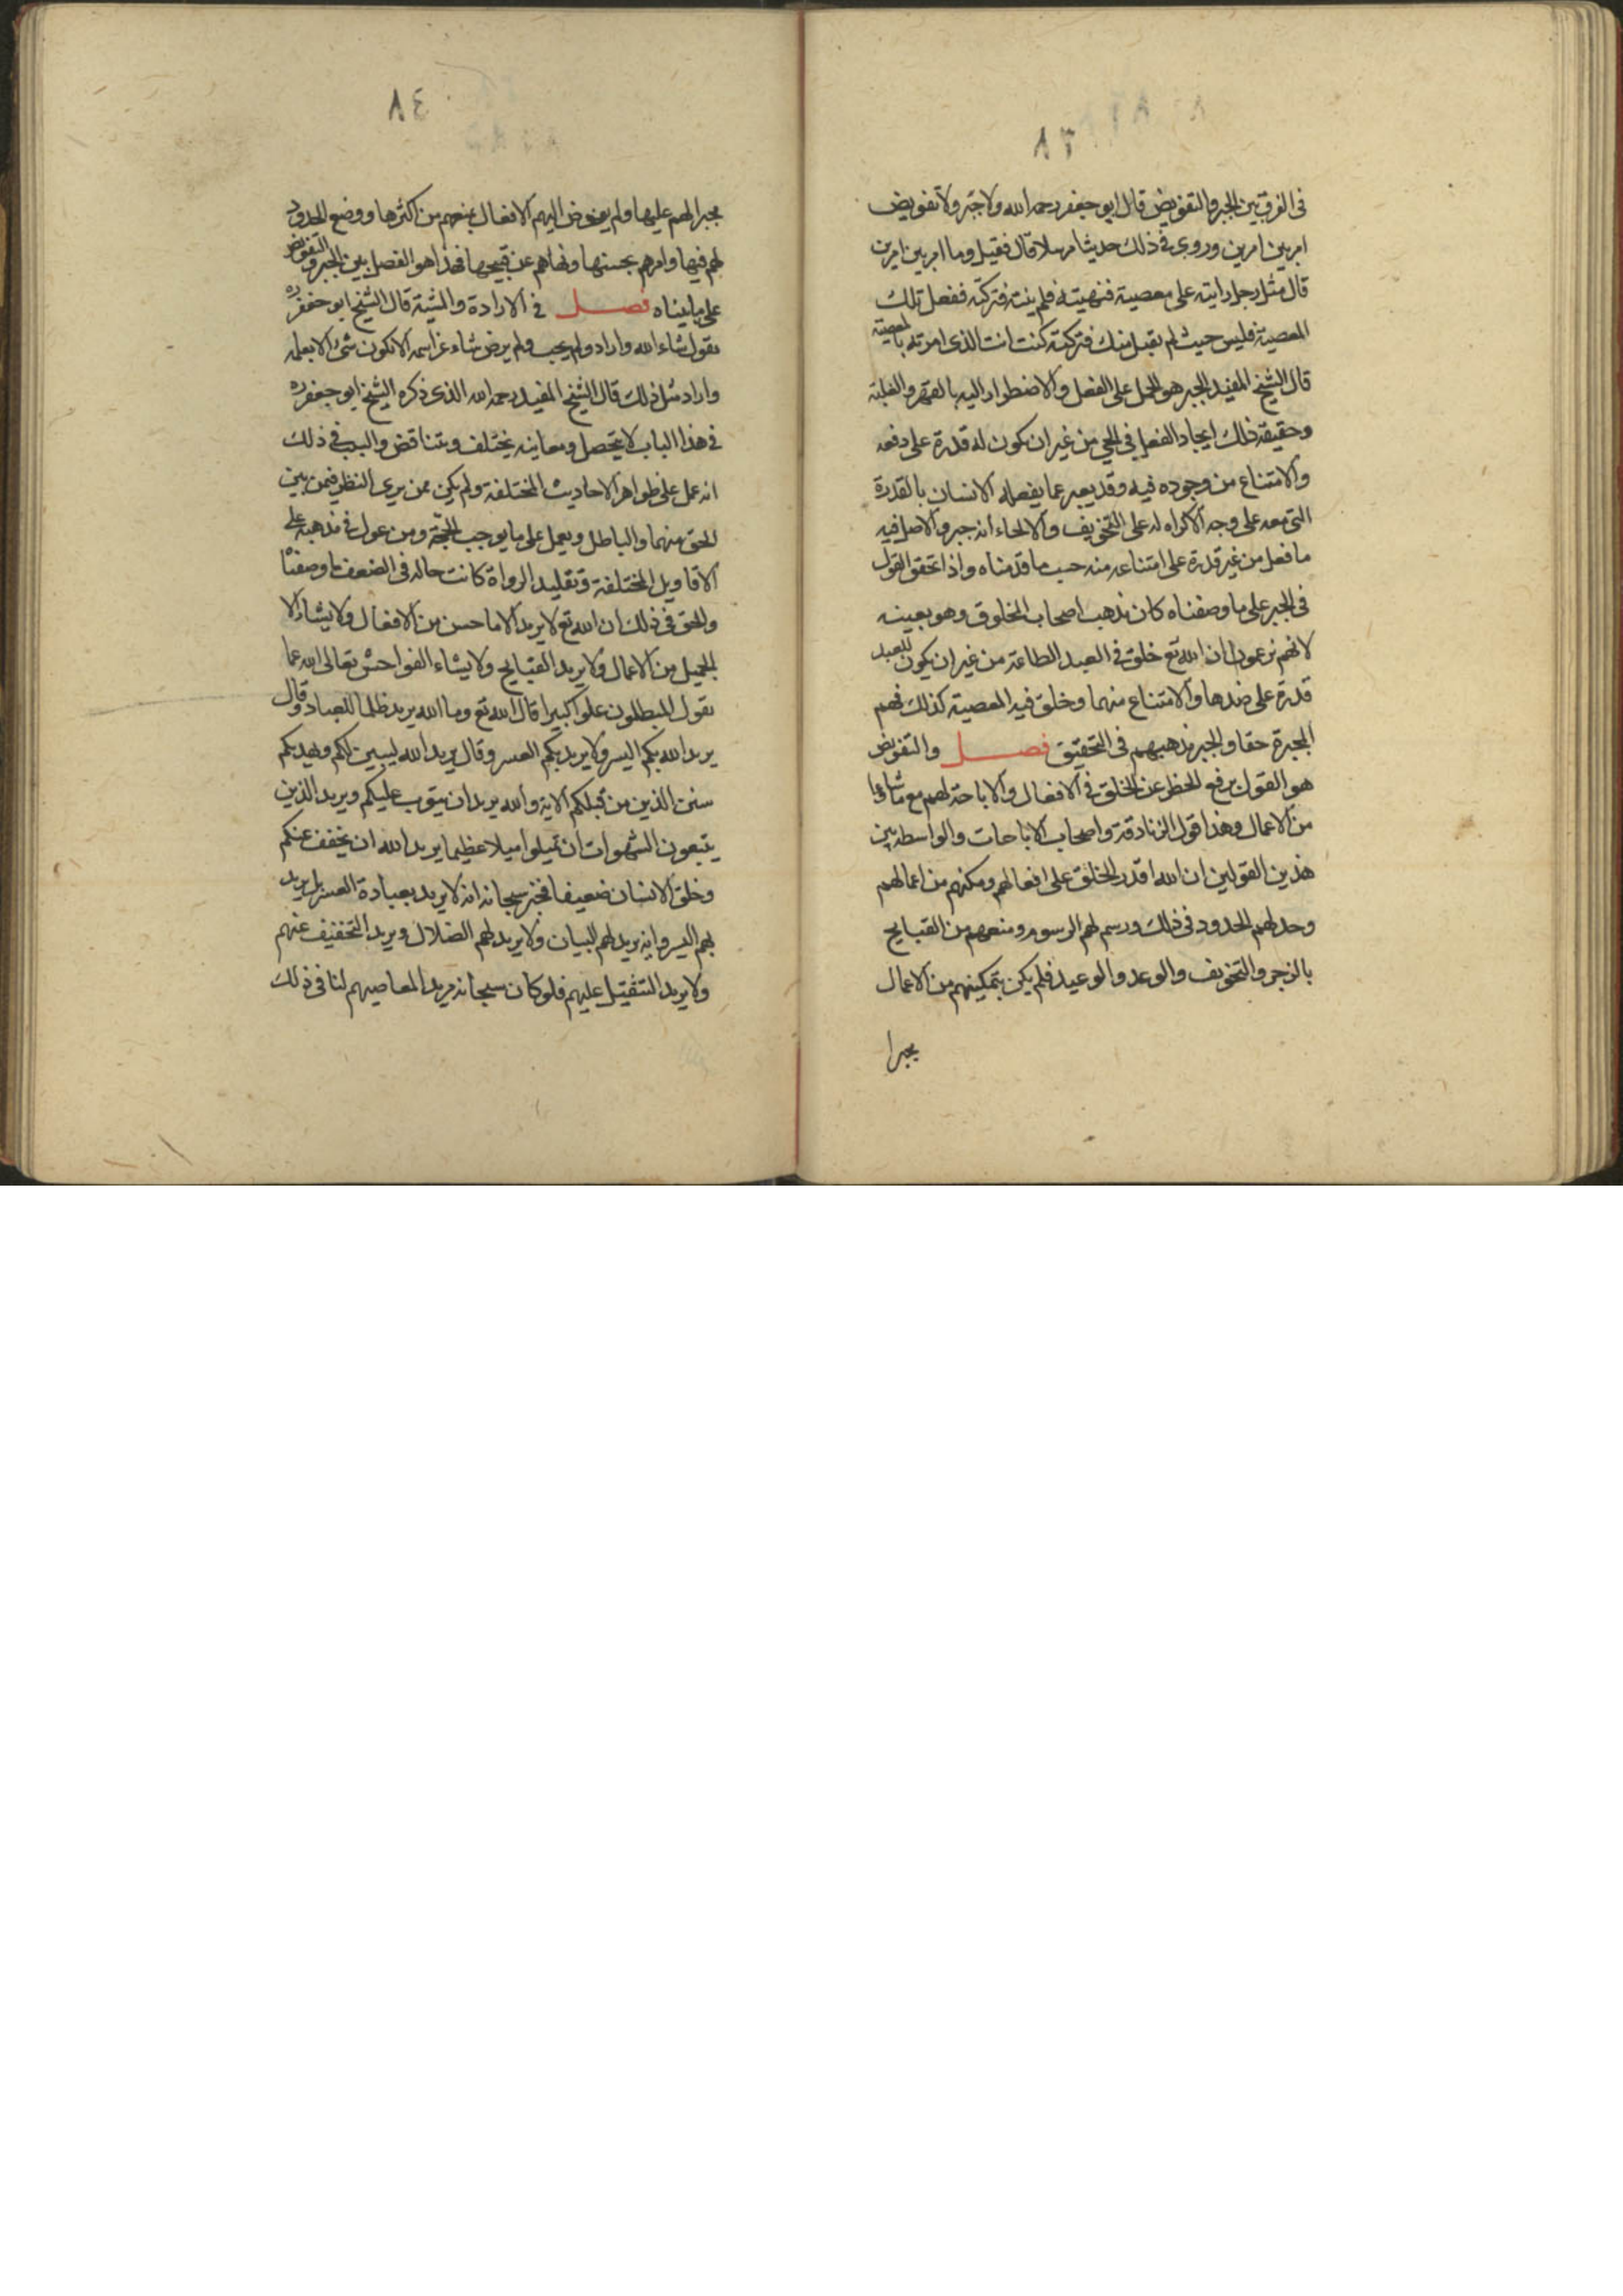 ٨٣
فى الفرق بين الجبر والتفويض قال ابو جعفر رحمه الله ولا جبر ولا تفويض
امر بين امرين وروى فى ذلك حديثا مرسلا قال فقيل وما امر بين امرين
قال مثل رجل رايته على معصية فنهيته فلم ينته فتركته ففعل تلك
المعصية فليس حيث لم يقبل منك فتركته كنت انت الذى امرته بالمعصية
قال الشيخ المفيد الجبر هو الحمل على الفعل والاضطرار اليه بالقهر والغلبة
وحقيقة ذلك ايجاد الفعل فى الحى من غير ان يكون له قدرة على دفعه
والامتناع من وجوده فيه وقد يعبر عما يفعله الانسان بالقدرة
التى معه على وجه الاكراه له على التخويف والالجاء انه جبر والاصل فيه
ما فعل من غير قدرة على امتناعه منه حسب ما قدمناه واذا تحقق القول
فى الجبر على ما وصفناه كان مذهب اصحاب المخلوق وهو بعينه
لانهم يزعمون ان الله تع خلق فى العبد الطاعة من غير ان يكون للعبد
قدرة على ضدها والامتناع منهما وخلق فيه المعصية كذلك فهم
المجبرة حقا والجبر مذهبهم فى التحقيق فصل والتفويض
هو القول برفع الحظر عن الخلق فى الافعال والاباحة لهم مع ما شاؤا
من الاعمال وهذا قول الزنادقة واصحاب الاباحات والواسطة بين
هذين القولين ان الله اقدر الخلق على افعالهم ومكنهم من اعمالهم
وحد لهم الحدود فى ذلك ورسم لهم الرسوم ومنعهم من القبايح
بالزجر والتخويف والوعد والوعيد فلم يكن بتمكينهم من الاعمال
مجبرا
٨٤
مجبرا لهم عليها ولم يفوض اليهم الافعال بمنعهم من اكثرها ووضع الحدود
لهم فيها وامرهم بحسنها ونهاهم عن قبيحها فهذا هو الفصل بين الجبر والتفويض
على ما بيناه فصل فى الارادة والمشية قال الشيخ ابو جعفر ره
نقول شاء الله واراد ولم يحب ولم يرض شاء عز اسمه الا يكون شئ الا بعلمه
واراد مثل ذلك قال الشيخ المفيد رحمه الله الذى ذكره الشيخ ابو جعفر ره
فى هذا الباب لا يتحصل ومعانيه يختلف ويتناقض والسبب فى ذلك
انه عمل على ظواهر الاحاديث المختلفة ولم يكن ممن يرى النظر فيمن بين
الحق منهما والباطل ويعمل على ما يوجب الحجة ومن عول فى مذهبه على
الاقاويل المختلفة وتقليد الرواة كانت حاله فى الضعف ما وصفنا
والحق فى ذلك ان الله تع لا يريد الا ما حسن من الافعال ولا يشاء الا
الجميل من الاعمال ولا يريد القبايح ولا يشاء الفواحش تعالى الله عما
يقول المبطلون علوا كبيرا قال الله تع وما الله يريد ظلما للعباد وقال
يريد الله بكم اليسر ولا يريد بكم العسر وقال يريد الله ليبين لكم ويهديكم
سنن الذين من قبلكم الاية والله يريد ان يتوب عليكم ويريد الذين
يتبعون الشهوات ان تميلوا ميلا عظيما يريد الله ان يخفف عنكم
وخلق الانسان ضعيفا فخبر سبحانه انه لا يريد بعباده العسر بل يريد
بهم اليسر وانه يريد لهم البيان ولا يريد لهم الضلال ويريد التخفيف عنهم
ولا يريد التثقيل عليهم فلو كان سبحانه مريد المعاصيهم لنا فى ذلك